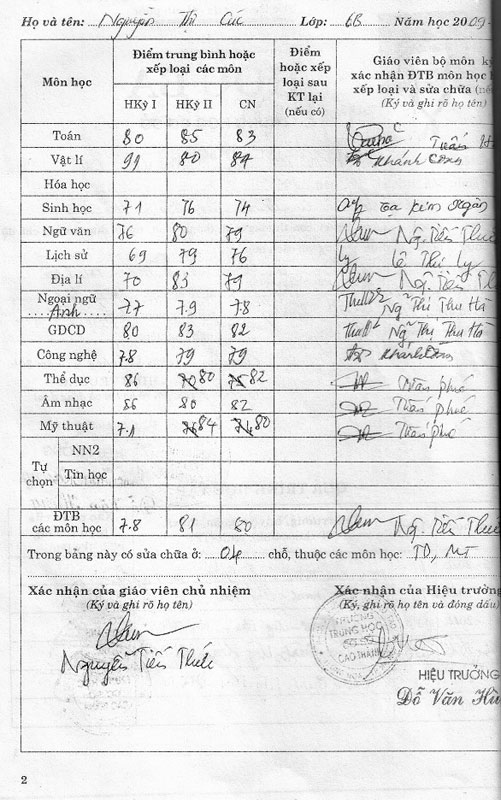 Họ và tên: Nguyễn Thị Cúc Lớp: 6B Năm học 2009-
Môn học Điểm trung bình hoặc xếp loại các môn Điểm hoặc xếp loại sau KT lại (nếu có) Giáo viên bộ môn ký xác nhận ĐTB môn học xếp loại và sửa chữa (nếu
(Ký và ghi rõ họ tên)
HKỳ I HKỳ II CN
Toán 80 85 83 Tuấn
Vật lí 99 80 87 Khánh Công
Hóa học
Sinh học 71 76 74 Tạ Kim Ngân
Ngữ văn 76 80 79 Ng. Tiến Thức
Lịch sử 69 79 76 Lê Thị Ly
Địa lí 70 83 79 Ng. Tiến
Ngoại ngữ Anh 77 7.9 78 Ng Thị Thu Hà
GDCD 80 83 82 Ng Thị Thu Hà
Công nghệ 7.8 79 79 Khánh Công
Thể dục 86 80 82 Văn Phú
Âm nhạc 86 80 82 Phú
Mỹ thuật 7.1 84 80 Phú
Tự chọn NN2
Tin học
ĐTB các môn học 7.8 81 80 Ng. Tiến Thức
Trong bảng này có sửa chữa ở: 04 chỗ, thuộc các môn học: TD, MT
Xác nhận của giáo viên chủ nhiệm Xác nhận của Hiệu trưởng
(Ký và ghi rõ họ tên) (Ký, ghi rõ họ tên và đóng dấu)
TRƯỜNG
TRUNG HỌC
CƠ SỞ
CAO THÀNH
Nguyễn Tiến Thức
HIỆU TRƯỞNG
Đỗ Văn
2